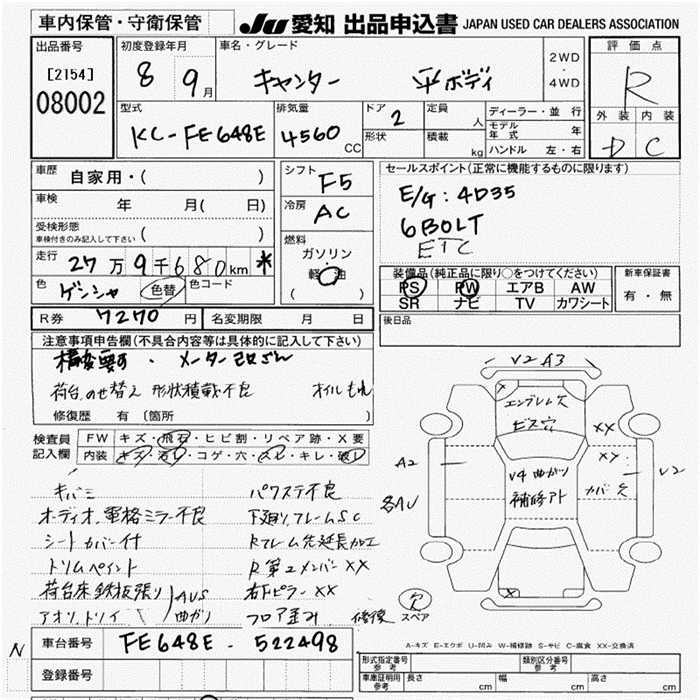 車内保管・守衛保管
JU 愛知 出品申込書 JAPAN USED CAR DEALERS ASSOCIATION
出品番号
[2154]
08002
初度登録年月
8 9月
車名・グレード
キャンター 平ボディ
2WD
・
4WD
評価点
R
外装 内装
D C
型式
KC-FE648E
排気量
4560 CC
ドア
2
形状
定員
人
積載
kg
ディーラー・並行
モデル年式 年
ハンドル 左・右
車歴
自家用・( )
車検
年 月( 日)
受検形態
車検付きのみ記入して下さい ( )
走行
27万9千680km *
色
ゲンシャ 色替 色コード
シフト
F5
冷房
AC
燃料
ガソリン
軽油
( )
セールスポイント(正常に機能するものに限ります)
E/G: 4D35
6BOLT
ETC
装備品(純正品に限り○をつけてください)
PS PW エアB AW
SR ナビ TV カワシート
新車保証書
有・無
R券 7270円 名変期限 月 日
後日品
注意事項申告欄(不具合内容等は具体的に記入して下さい)
荷台のせ替え 形状積載不良 オイルもれ
修復歴 有〔箇所 〕
検査員記入欄
FW キズ・飛石・ヒビ割・リペア跡・X要
内装 キズ・汚れ・コゲ・穴・スレ・キレ・破レ
キバミ パワステ不良
オーディオ、電格ミラー不良 下廻り、フレームSC
シートカバー付 Rフレーム先延長加工
ドリムペイント R第2メンバーXX
荷台床鉄板張り AUS 右Fピラー XX
アオリ、トリイ 曲ガリ フロア歪み 修復
V2 A3
エンブレム欠
ビス穴
XX
XX
A2
V2
V4 曲ガリ
補修アト
カバー欠
各AU
欠
スペア
A-キズ E-エクボ U-凹み W-補修跡 S-サビ C-腐食 XX-交換済
N
車台番号 FE648E-522498
登録番号
形式指定番号
参考
類別区分番号
参考
車庫証明用
参考
長さ cm 幅 cm 高さ cm